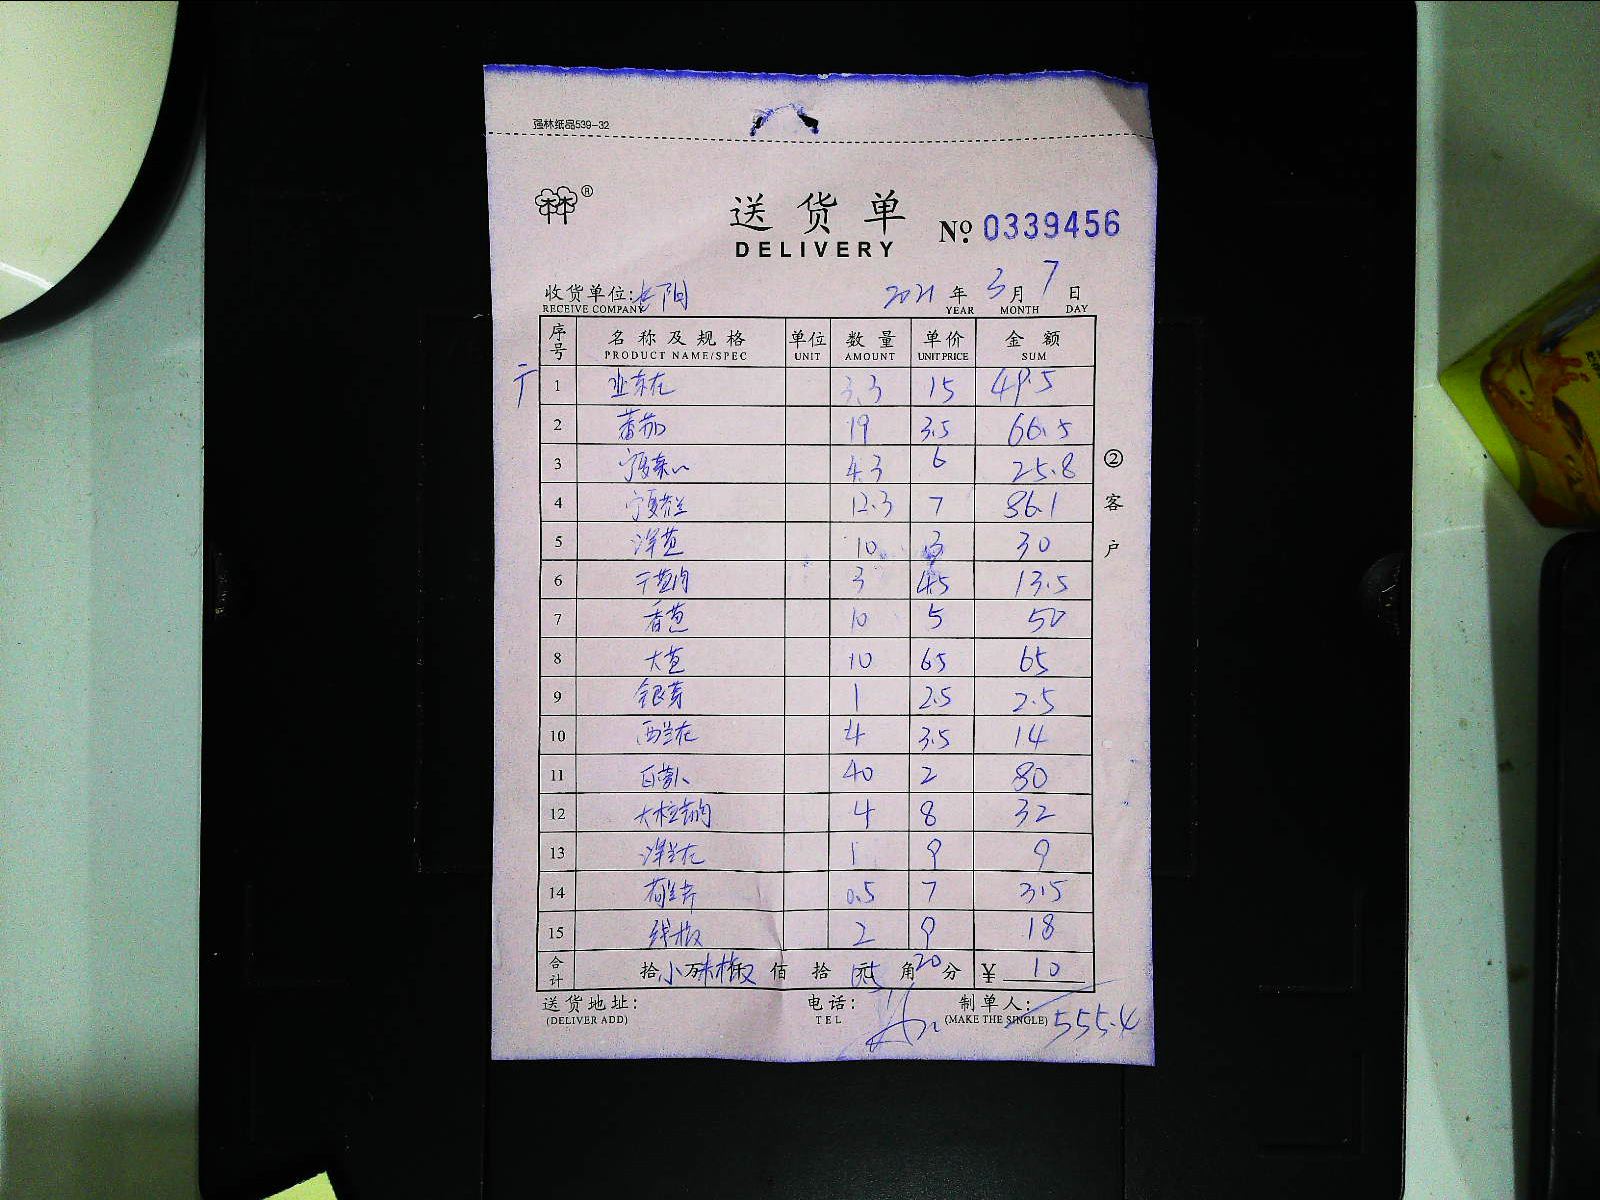 强林纸品539-32
林林®
送货单
DELIVERY
№ 0339456
收货单位: 阳 2021 年 3 月 7 日
RECEIVE COMPANY YEAR MONTH DAY
序号 名称及规格 单位 数量 单价 金额
PRODUCT NAME/SPEC UNIT AMOUNT UNIT PRICE SUM
1 3.3 15 49.5
2 蕃茄 19 3.5 66.5
3 宁夏菜心 4.3 6 25.8
4 宁夏芥兰 12.3 7 86.1
5 洋葱 10 3 30
6 干葱肉 3 4.5 13.5
7 香葱 10 5 50
8 大葱 10 6.5 65
9 银芽 1 2.5 2.5
10 西兰花 4 3.5 14
11 白萝卜 40 2 80
12 4 8 32
13 1 9 9
14 荷兰芹 0.5 7 3.5
15 线椒 2 9 18
合计 拾 小米椒 万 仟 佰 拾 0.5 元 角 20 分 ¥ 10
送货地址: 电话: 制单人:
(DELIVER ADD) TEL (MAKE THE SINGLE) 555.4
②客户